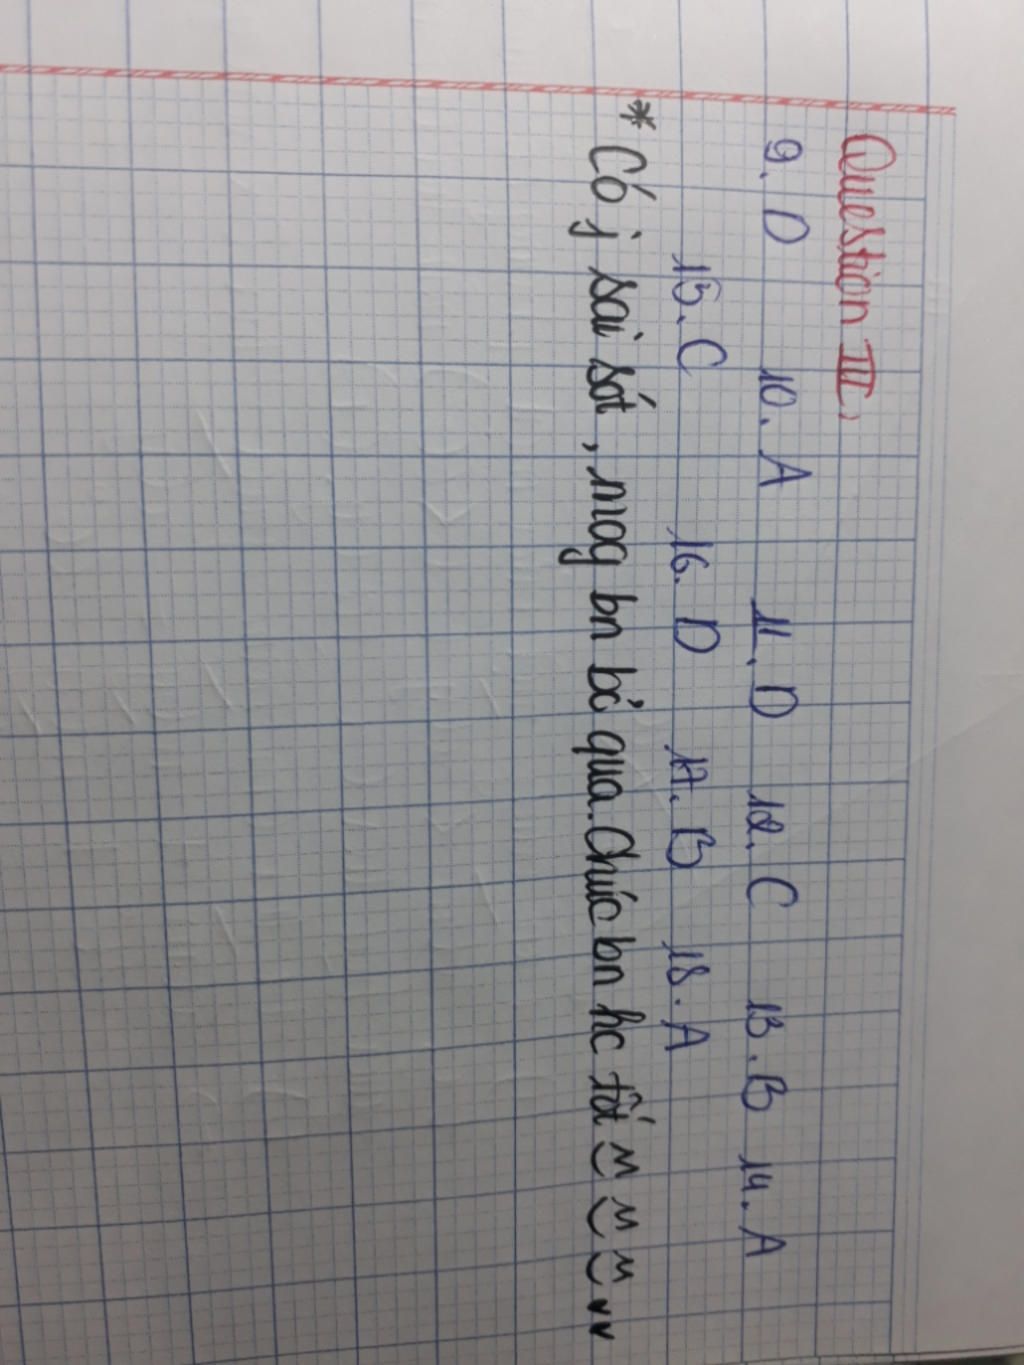 Question III.
9. D 10. A 11. D 12. C 13. B 14. A
15. C 16. D 17. B 18. A
* Có j sai sót, mog bn bỏ qua. Chúc bn hc tốt